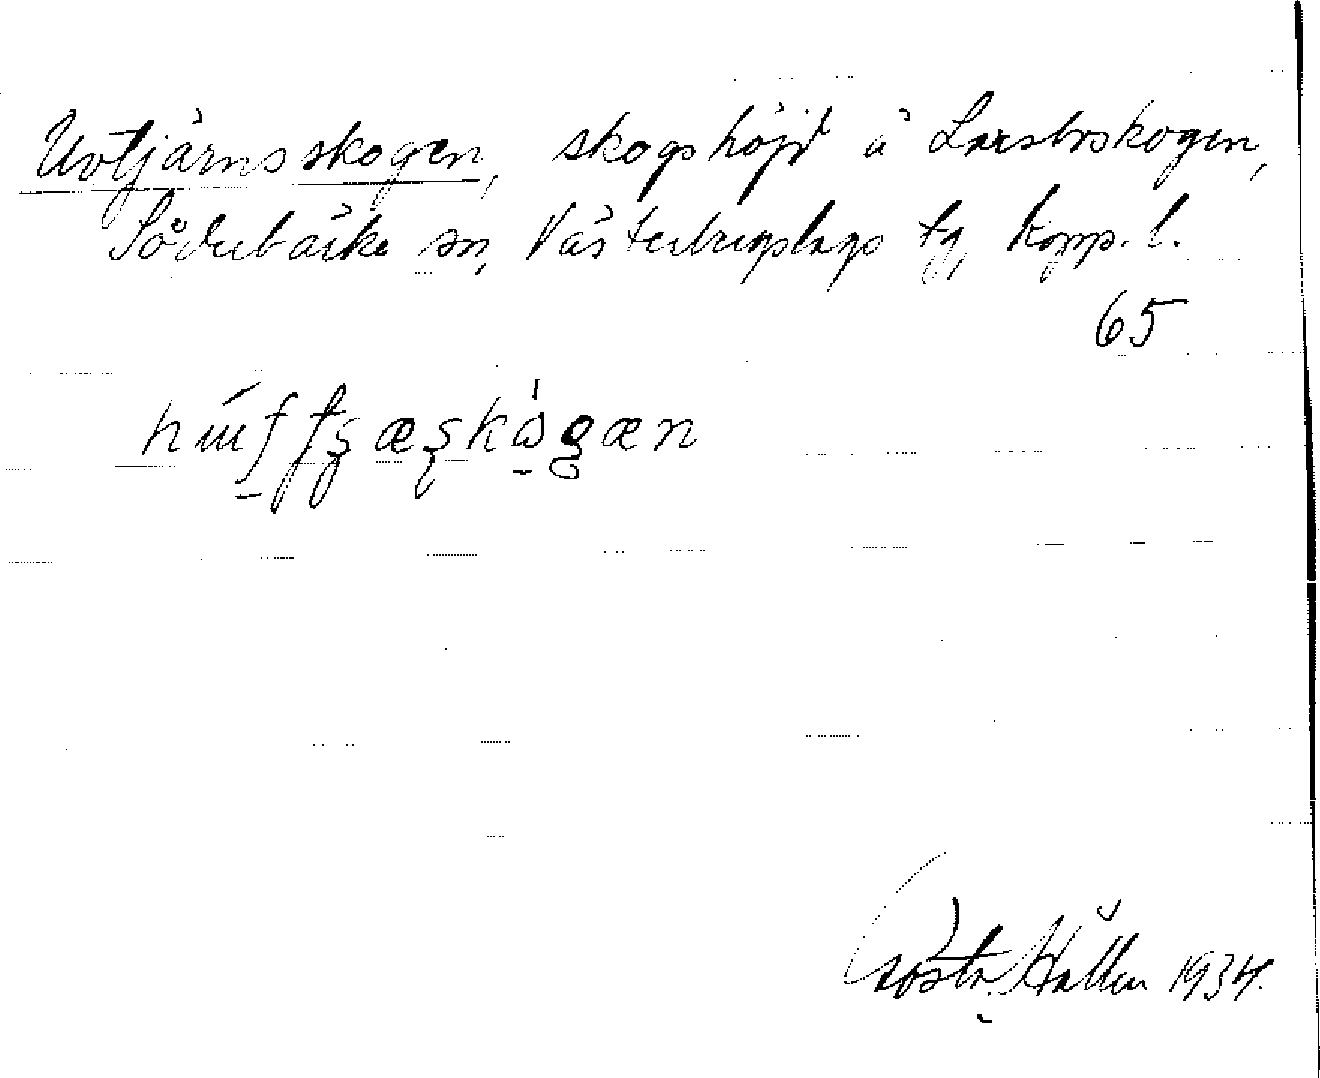 Uvtjärnsskogen, skogshöjd å Larsboskogen,
Söderbärke sn, Västerbergslags tg, Kopp. l.
65
Gösta Hallen 1934.